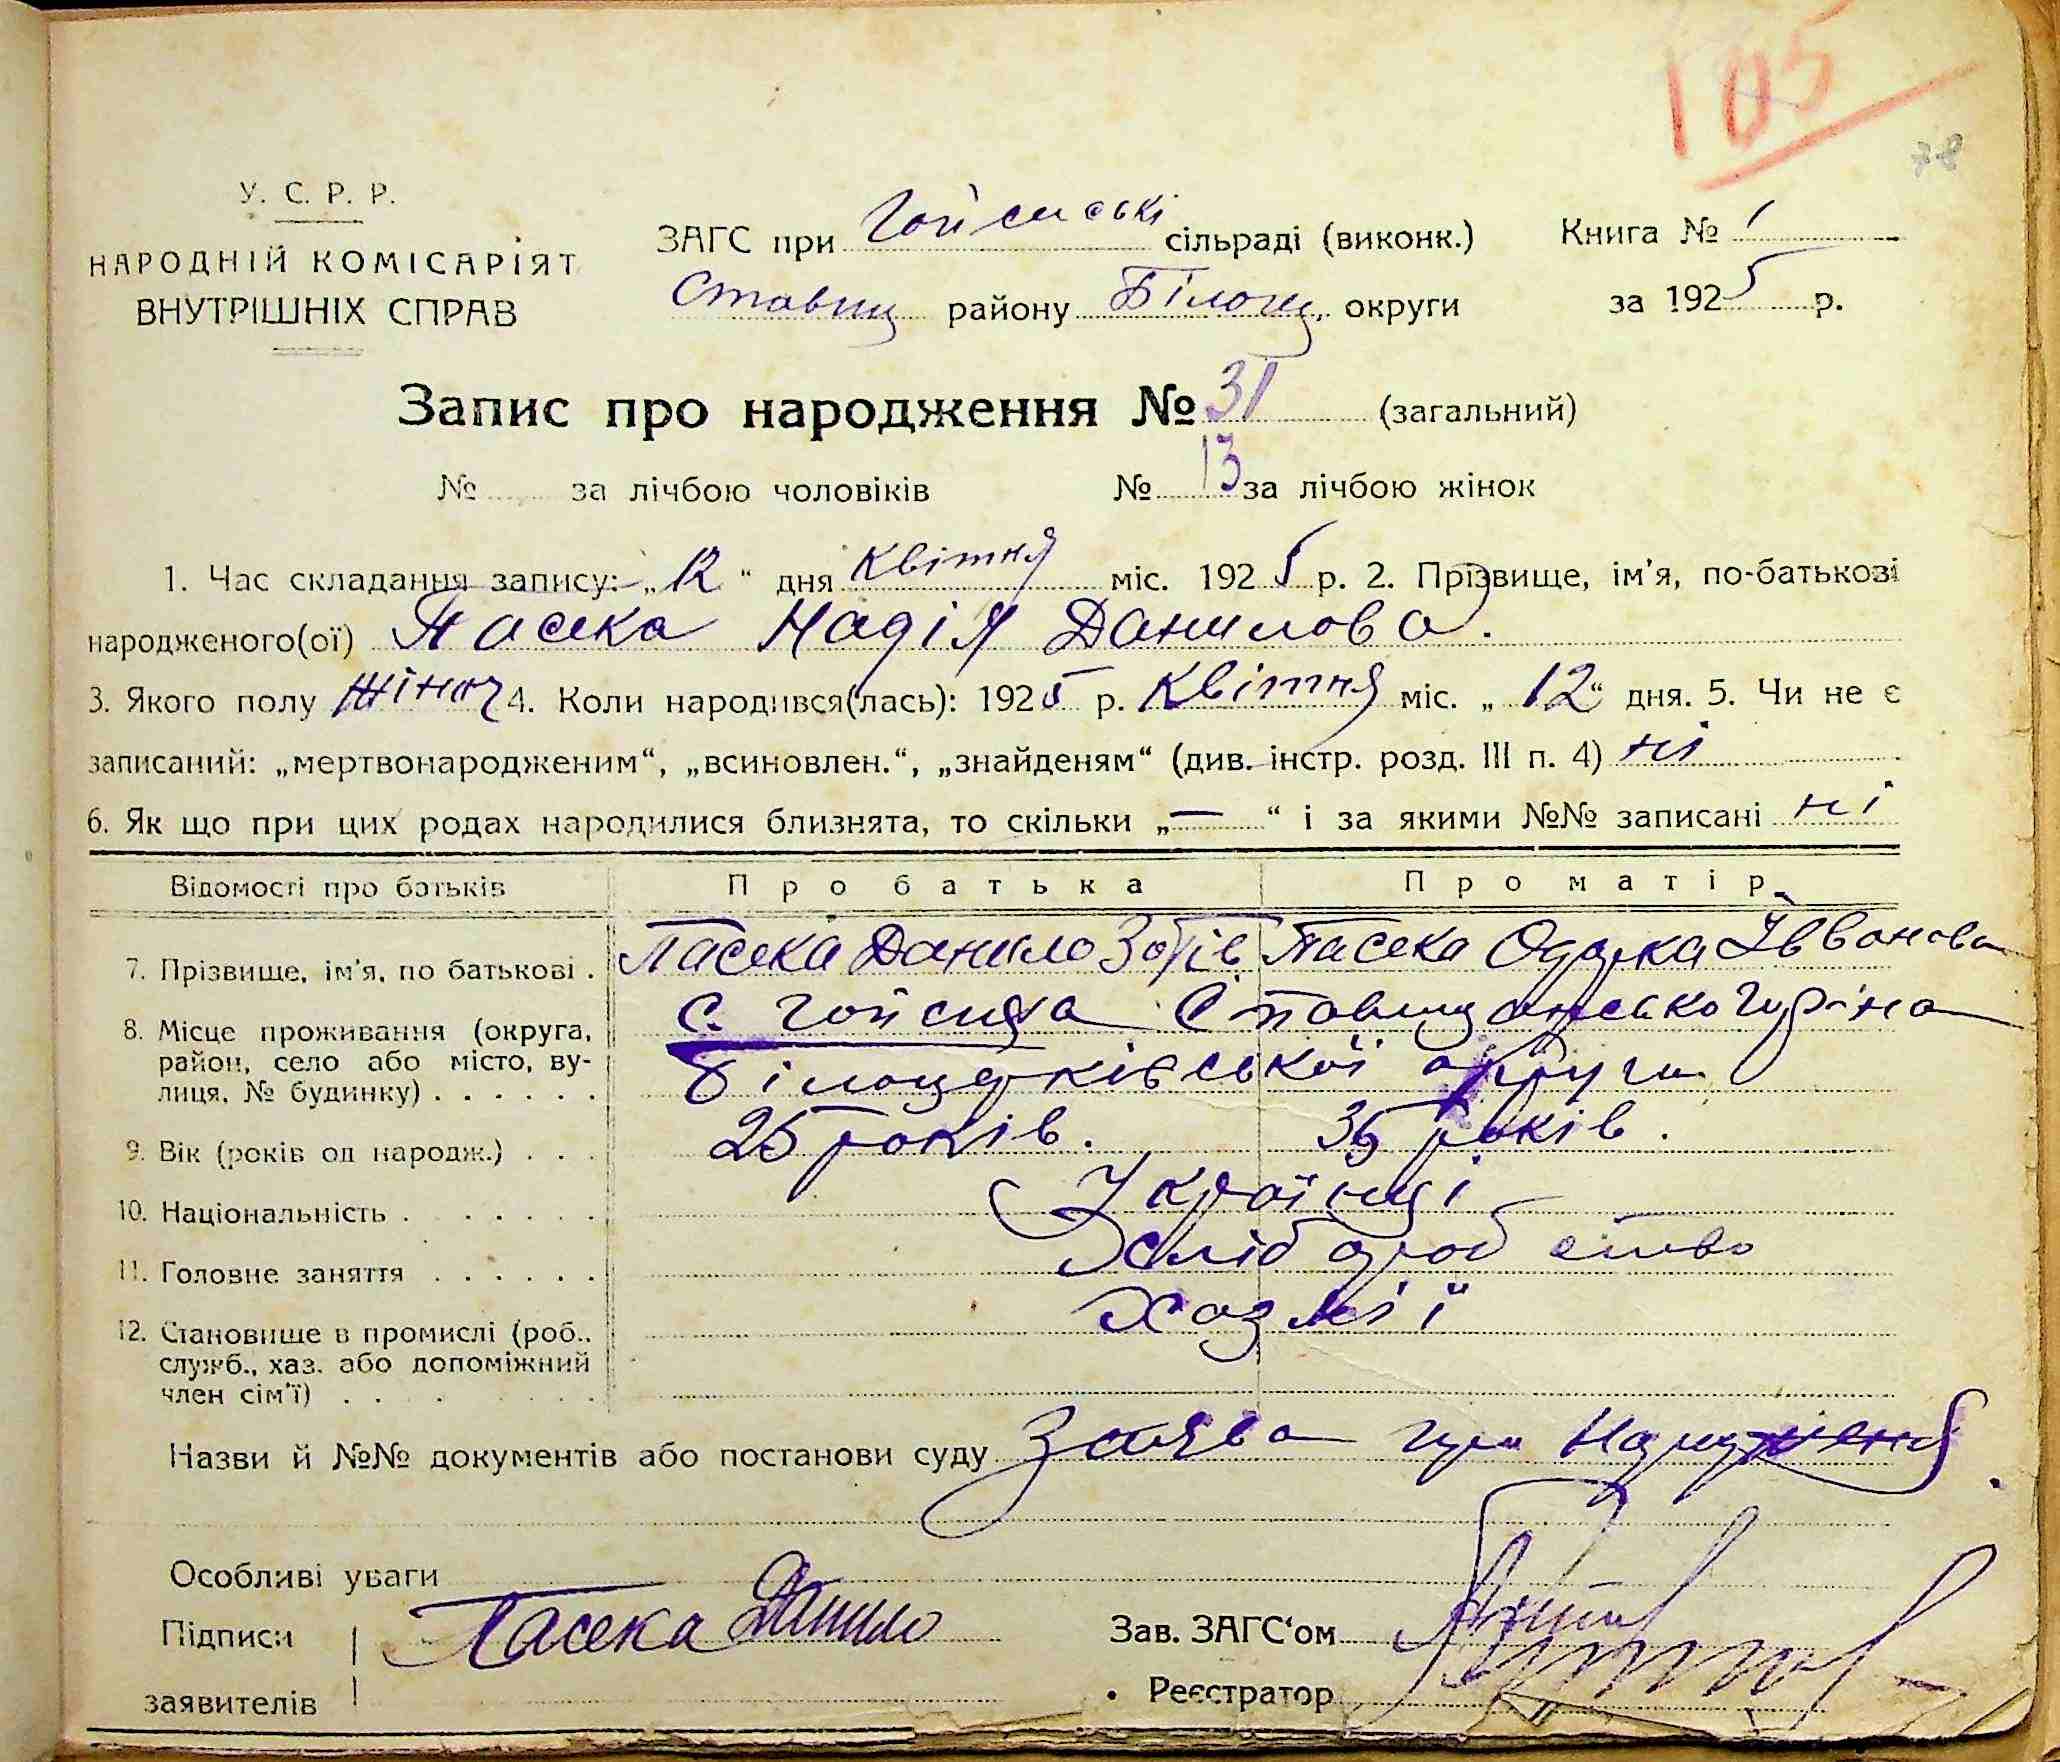 105
78
У. С. Р. Р.
НАРОДНІЙ КОМІСАРІЯТ
ВНУТРІШНІХ СПРАВ
ЗАГС при Гойсиські сільраді (виконк.)
Ставищ району Білоц. округи
Книга № 1
за 1925 р.
Запис про народження № 31 (загальний)
№ за лічбою чоловіків № 13 за лічбою жінок
1. Час складання запису: „12“ дня квітня міс. 1925 р. 2. Прізвище, ім'я, по-батькові
народженого(ої) Пасєка Надія Данилова.
3. Якого полу жіноч 4. Коли народився(лась): 1925 р. Квітня міс. „12“ дня. 5. Чи не є
записаний: „мертвонародженим“, „всиновлен.“, „знайденям“ (див. інстр. розд. III п. 4) ні
6. Як що при цих родах народилися близнята, то скільки „—“ і за якими №№ записані ні
Відомості про батьків Про батька Про матір
7. Прізвище, ім'я, по батькові . Пасека Данило Зотів Пасека Одарка Івванова
8. Місце проживання (округа, район, село або місто, вулиця, № будинку) . . . . . . с. Гойсиха Ставищанського
Білоцерківської округи
9. Вік (років од народж.) . . . 25 років. 35 років.
10. Національність . . . . . . . Українці
11. Головне заняття . . . . . . Хлібороб ство
12. Становище в промислі (роб., служб., хаз. або допоміжний член сім'ї) . . . Хазяї
Назви й №№ документів або постанови суду Заява про Народження.
Особливі уваги
Підписи заявителів Пасека Данило
Зав. ЗАГС'ом
Реєстратор